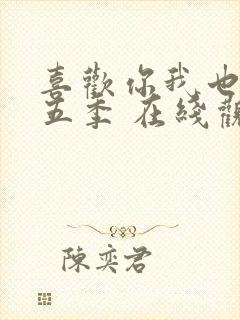 喜歡你我也
五季 在綫觀
陳奕君